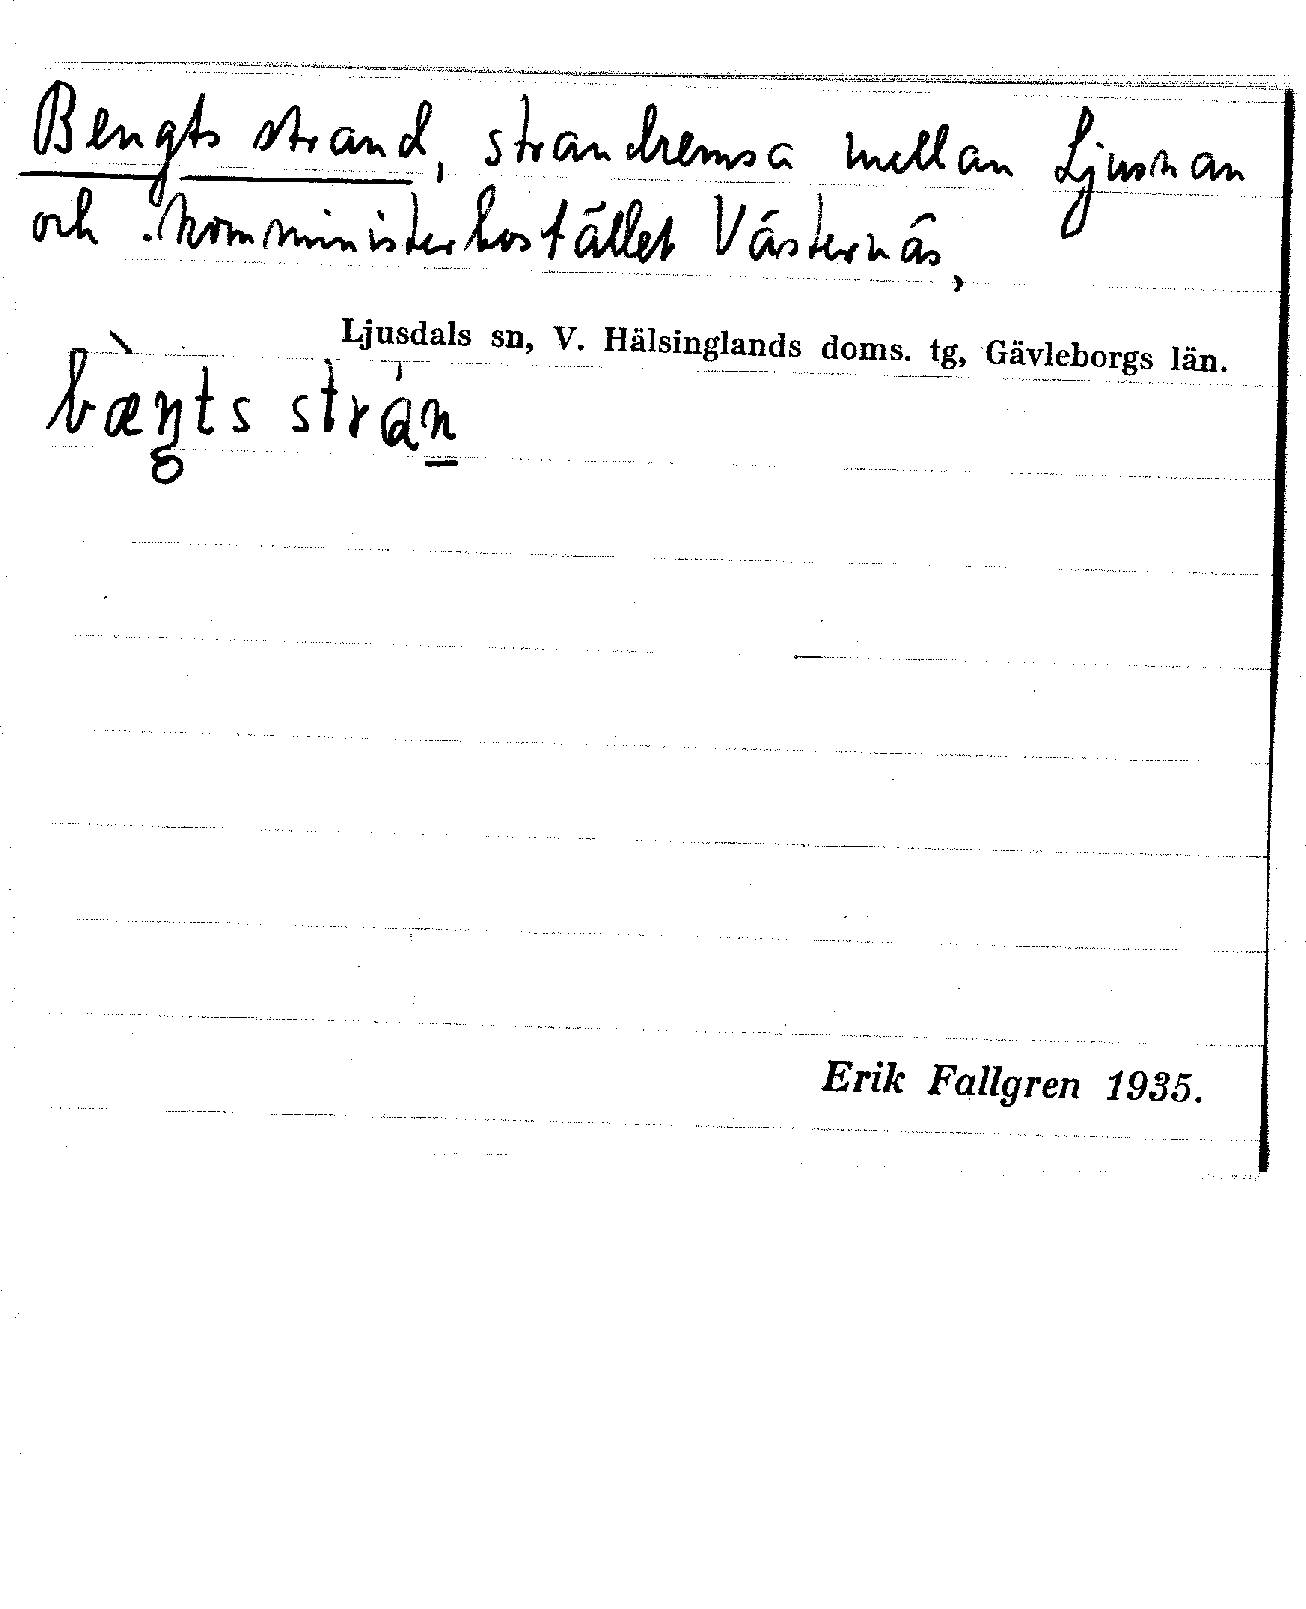 Bengts strand, strandremsa mellan Ljusnan
och kommministerbostället Västernäs,
Ljusdals sn, V. Hälsinglands doms. tg, Gävleborgs län.
bæ̀ŋts stran
Erik Fallgren 1935.